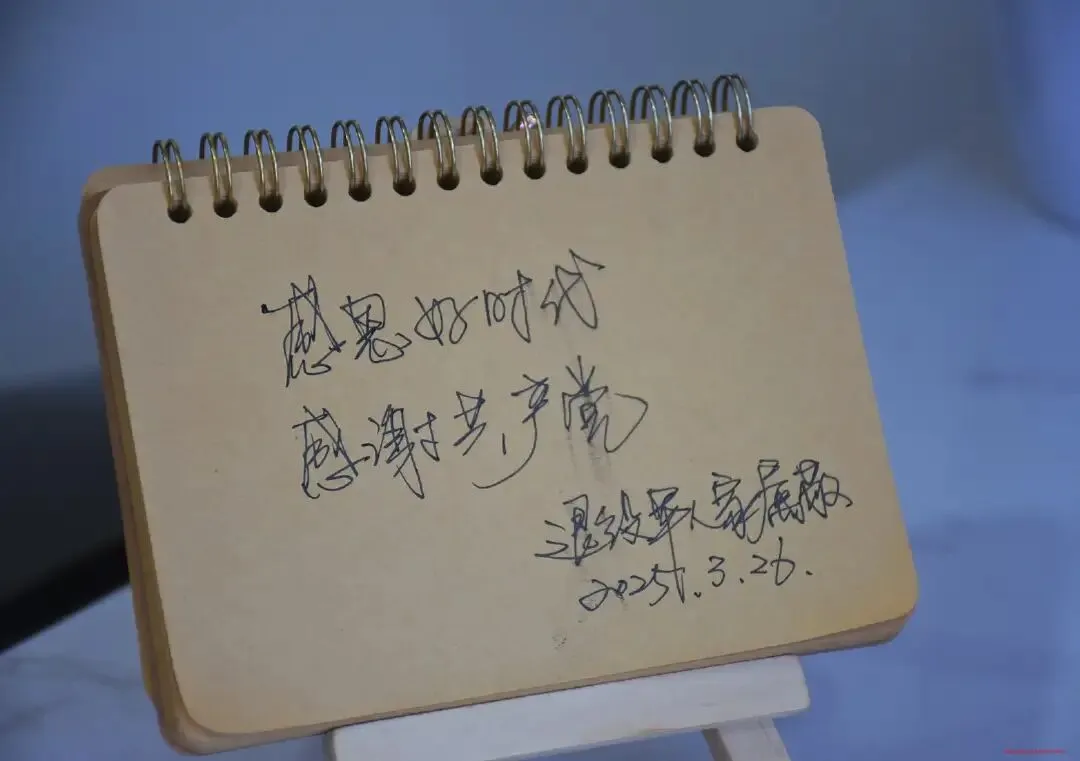 感恩好时代
感谢共产党
退役军人家属敬
2025.3.26.